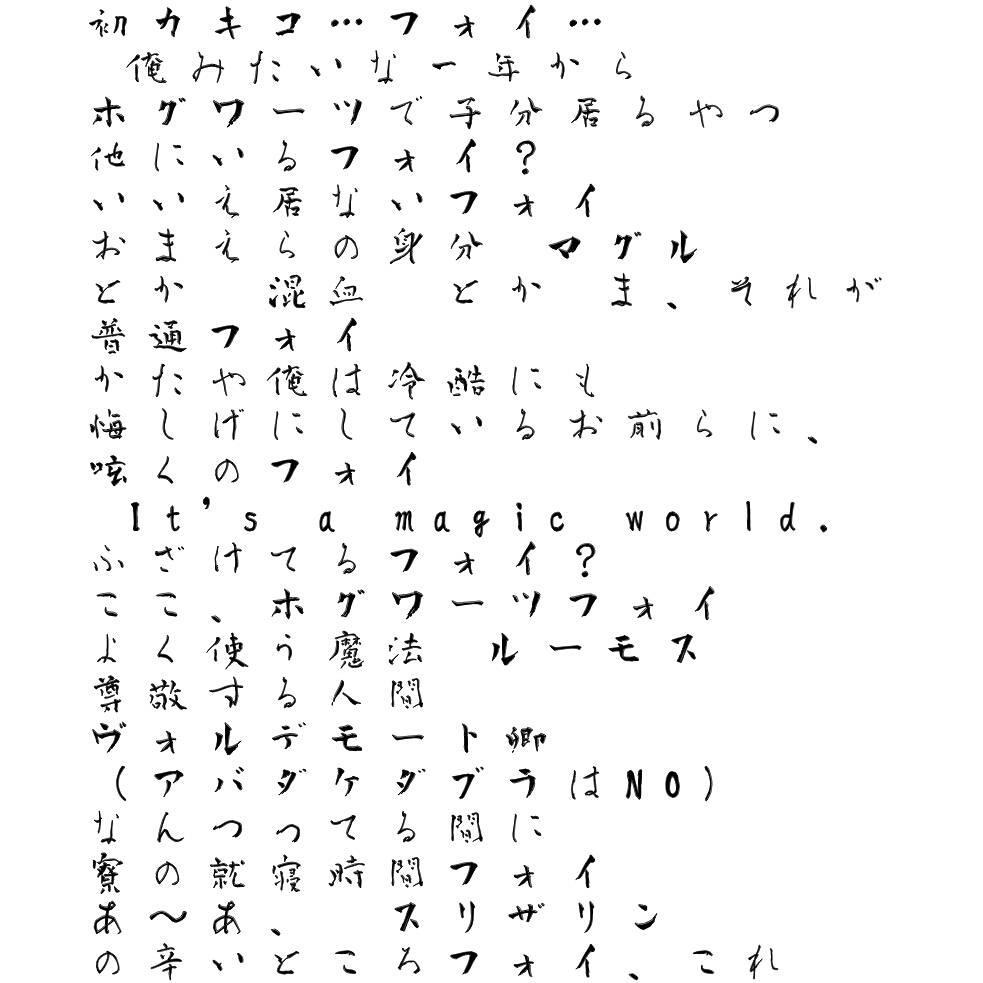 初カキコ…フォイ…
俺みたいな一年から
ホグワーツで子分居るやつ
他にいるフォイ？
いいえ居ないフォイ
おまえらの身分　マグル
とか　混血　とか　ま、それが
普通フォイ
かたや俺は冷酷にも
悔しげにしているお前らに、
呟くのフォイ
It's a magic world.
ふざけてるフォイ？
ここ、ホグワーツフォイ
よく使う魔法　ルーモス
尊敬する人間
ヴォルデモート卿
（アバダケダブラはNO）
なんつってる間に
寮の就寝時間フォイ
あ～あ、　スリザリン
の辛いところフォイ、これ